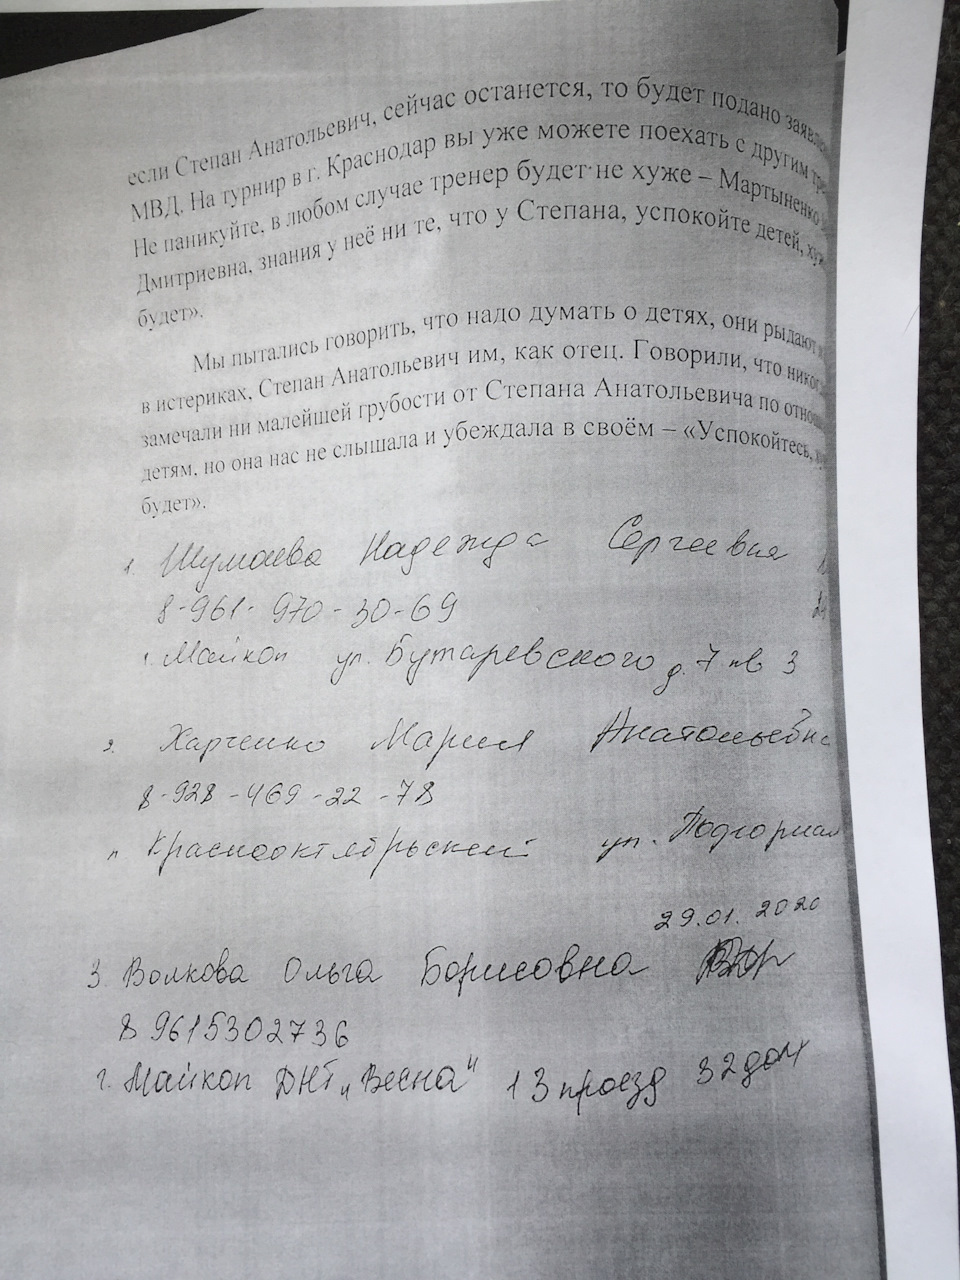 если Степан Анатольевич, сейчас останется, то будет подано
МВД. На турнир в г. Краснодар вы уже можете поехать с другим
Не паникуйте, в любом случае тренер будет не хуже – Мартыненко
Дмитриевна, знания у неё ни те, что у Степана, успокойте детей,
будет».
Мы пытались говорить, что надо думать о детях, они рыдают
в истериках, Степан Анатольевич им, как отец. Говорили, что
замечали ни малейшей грубости от Степана Анатольевича по
детям, но она нас не слышала и убеждала в своём – «Успокойтесь,
будет».
1. Шумаева Надежда Сергеевна
8-961-970-30-69
г. Майкоп ул. Бутаревского д. 7 кв 3
2. Харченко Мария Анатольевна
8-928-469-22-78
п Краснооктябрьский ул. Подгорная
29.01.2020
3 Волкова Ольга Борисовна
8 9615302736
г. Майкоп ДНТ „Весна" 13 проезд 32 дом